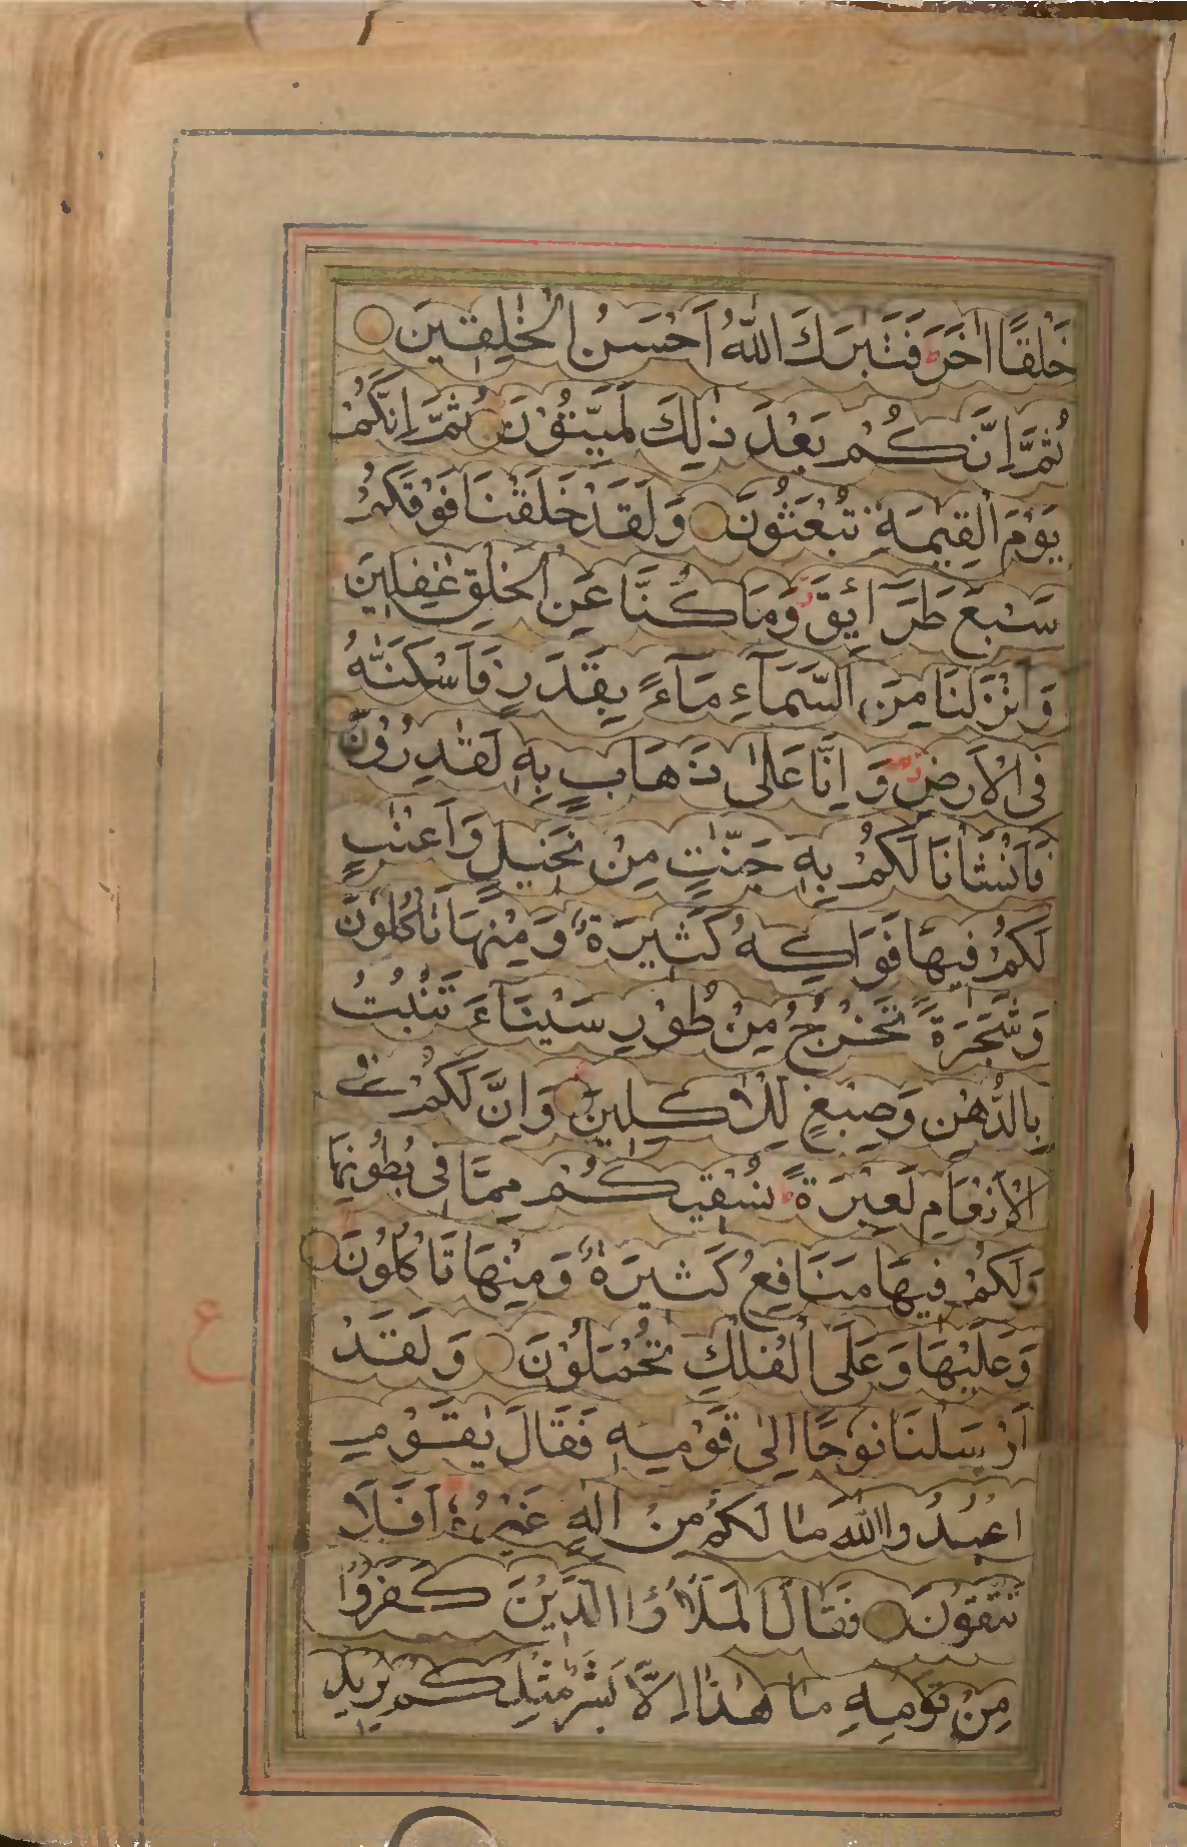 خَلْقًا اٰخَرَ ط فَتَبٰرَكَ اللّٰهُ اَحْسَنُ الْخٰلِقِيْنَ
ثُمَّ اِنَّكُمْ بَعْدَ ذٰلِكَ لَمَيِّتُوْنَ ثُمَّ اِنَّكُمْ
يَوْمَ الْقِيٰمَةِ تُبْعَثُوْنَ وَلَقَدْ خَلَقْنَا فَوْقَكُمْ
سَبْعَ طَرَآئِقَ وَمَا كُنَّا عَنِ الْخَلْقِ غٰفِلِيْنَ
وَاَنْزَلْنَا مِنَ السَّمَآءِ مَآءً بِقَدَرٍ فَاَسْكَنّٰهُ
فِى الْاَرْضِ وَاِنَّا عَلٰى ذَهَابٍ بِهٖ لَقٰدِرُوْنَ
فَاَنْشَاْنَا لَكُمْ بِهٖ جَنّٰتٍ مِنْ نَخِيْلٍ وَاَعْنٰبٍ
لَكُمْ فِيْهَا فَوَاكِهُ كَثِيْرَةٌ وَمِنْهَا تَاْكُلُوْنَ
وَشَجَرَةً تَخْرُجُ مِنْ طُوْرِ سَيْنَآءَ تَنْبُتُ
بِالدُّهْنِ وَصِبْغٍ لِلْاٰكِلِيْنَ وَاِنَّ لَكُمْ فِى
الْاَنْعَامِ لَعِبْرَةً ط نُسْقِيْكُمْ مِمَّا فِى بُطُوْنِهَا
وَلَكُمْ فِيْهَا مَنَافِعُ كَثِيْرَةٌ وَمِنْهَا تَاْكُلُوْنَ
وَعَلَيْهَا وَعَلَى الْفُلْكِ تُحْمَلُوْنَ وَلَقَدْ
ع
اَرْسَلْنَا نُوْحًا اِلٰى قَوْمِهٖ فَقَالَ يٰقَوْمِ
اعْبُدُوا اللّٰهَ مَا لَكُمْ مِنْ اِلٰهٍ غَيْرُهٗ اَفَلَا
تَتَّقُوْنَ فَقَالَ الْمَلَؤُا الَّذِيْنَ كَفَرُوْا
مِنْ قَوْمِهٖ مَا هٰذَا اِلَّا بَشَرٌ مِثْلُكُمْ يُرِيْدُ